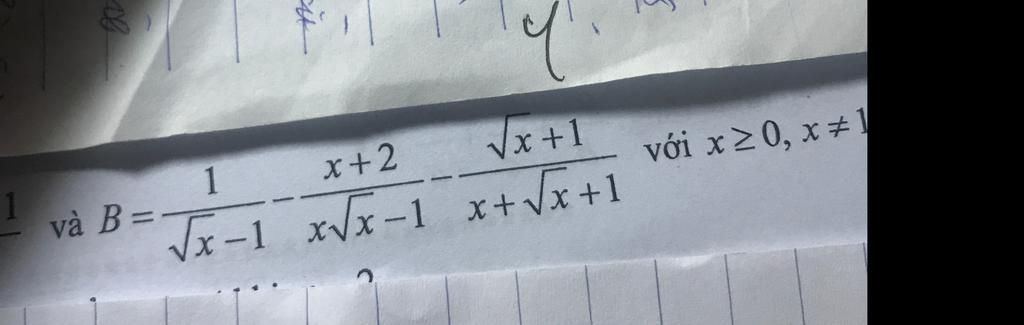 1 và B = \frac{1}{\sqrt{x}-1} - \frac{x+2}{x\sqrt{x}-1} - \frac{\sqrt{x}+1}{x+\sqrt{x}+1} với x ≥ 0, x ≠ 1